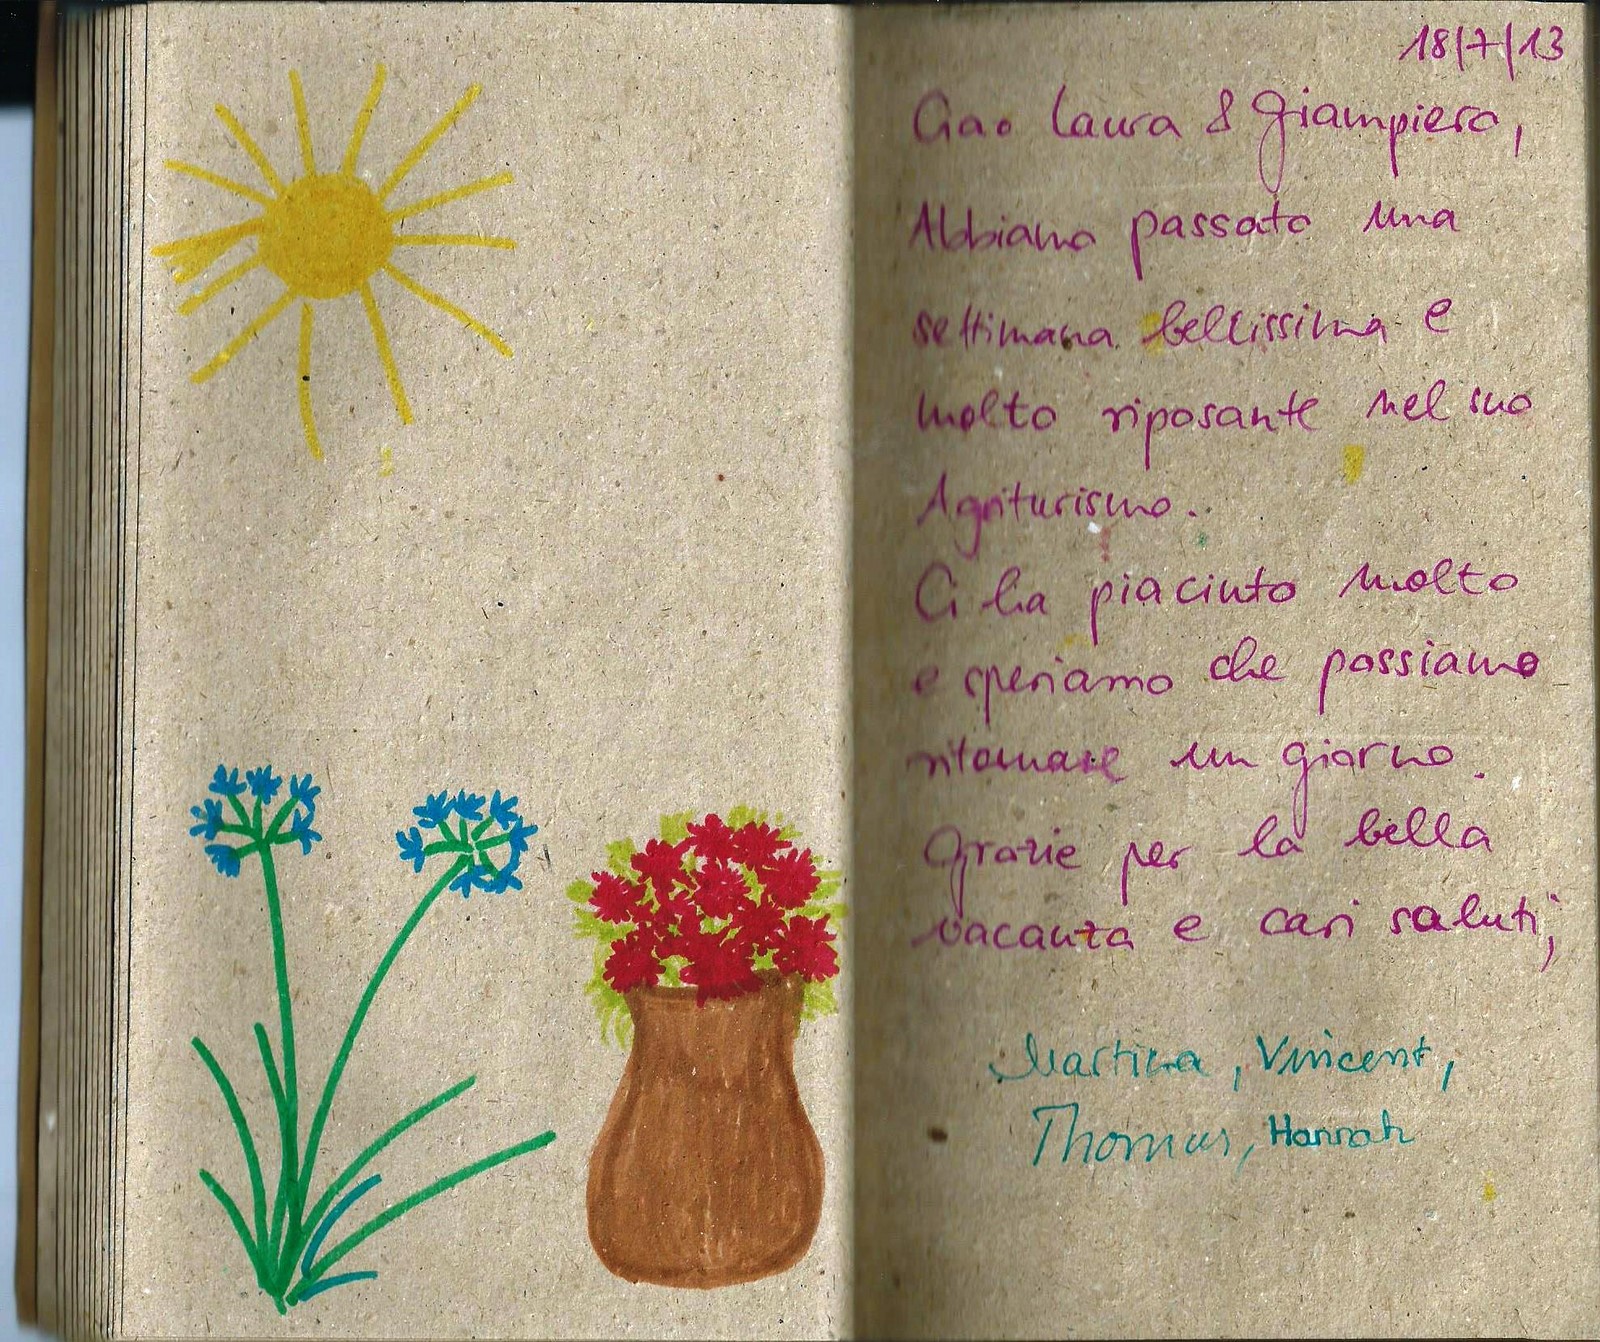 18/7/13
Ciao Laura & Giampiero,
Abbiamo passato una
settimana bellissima e
molto riposante nel suo
Agriturismo.
Ci ha piaciuto molto
e speriamo che possiamo
ritornare un giorno.
Grazie per la bella
vacanza e cari saluti,
Martina, Vincent,
Thomas, Hannah